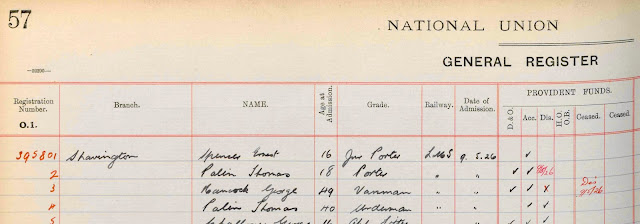 57
NATIONAL UNION
GENERAL REGISTER
Registration Number. Branch. NAME. Age at Admission. Grade. Railway. Date of Admission. PROVIDENT FUNDS.
O.1. D. & O. Acc. Dis. H.O. O.B. Ceased. Ceased
395801 Shavington Spencer Ernest 16 Jnr Porter LMS 9.5.26 ✓
2 Palin Thomas 18 Porter " " ✓ ✓
3 Hancock George 49 Vanman " " ✓ ✓ x
4 Palin Thomas 40 Underman " " ✓
5